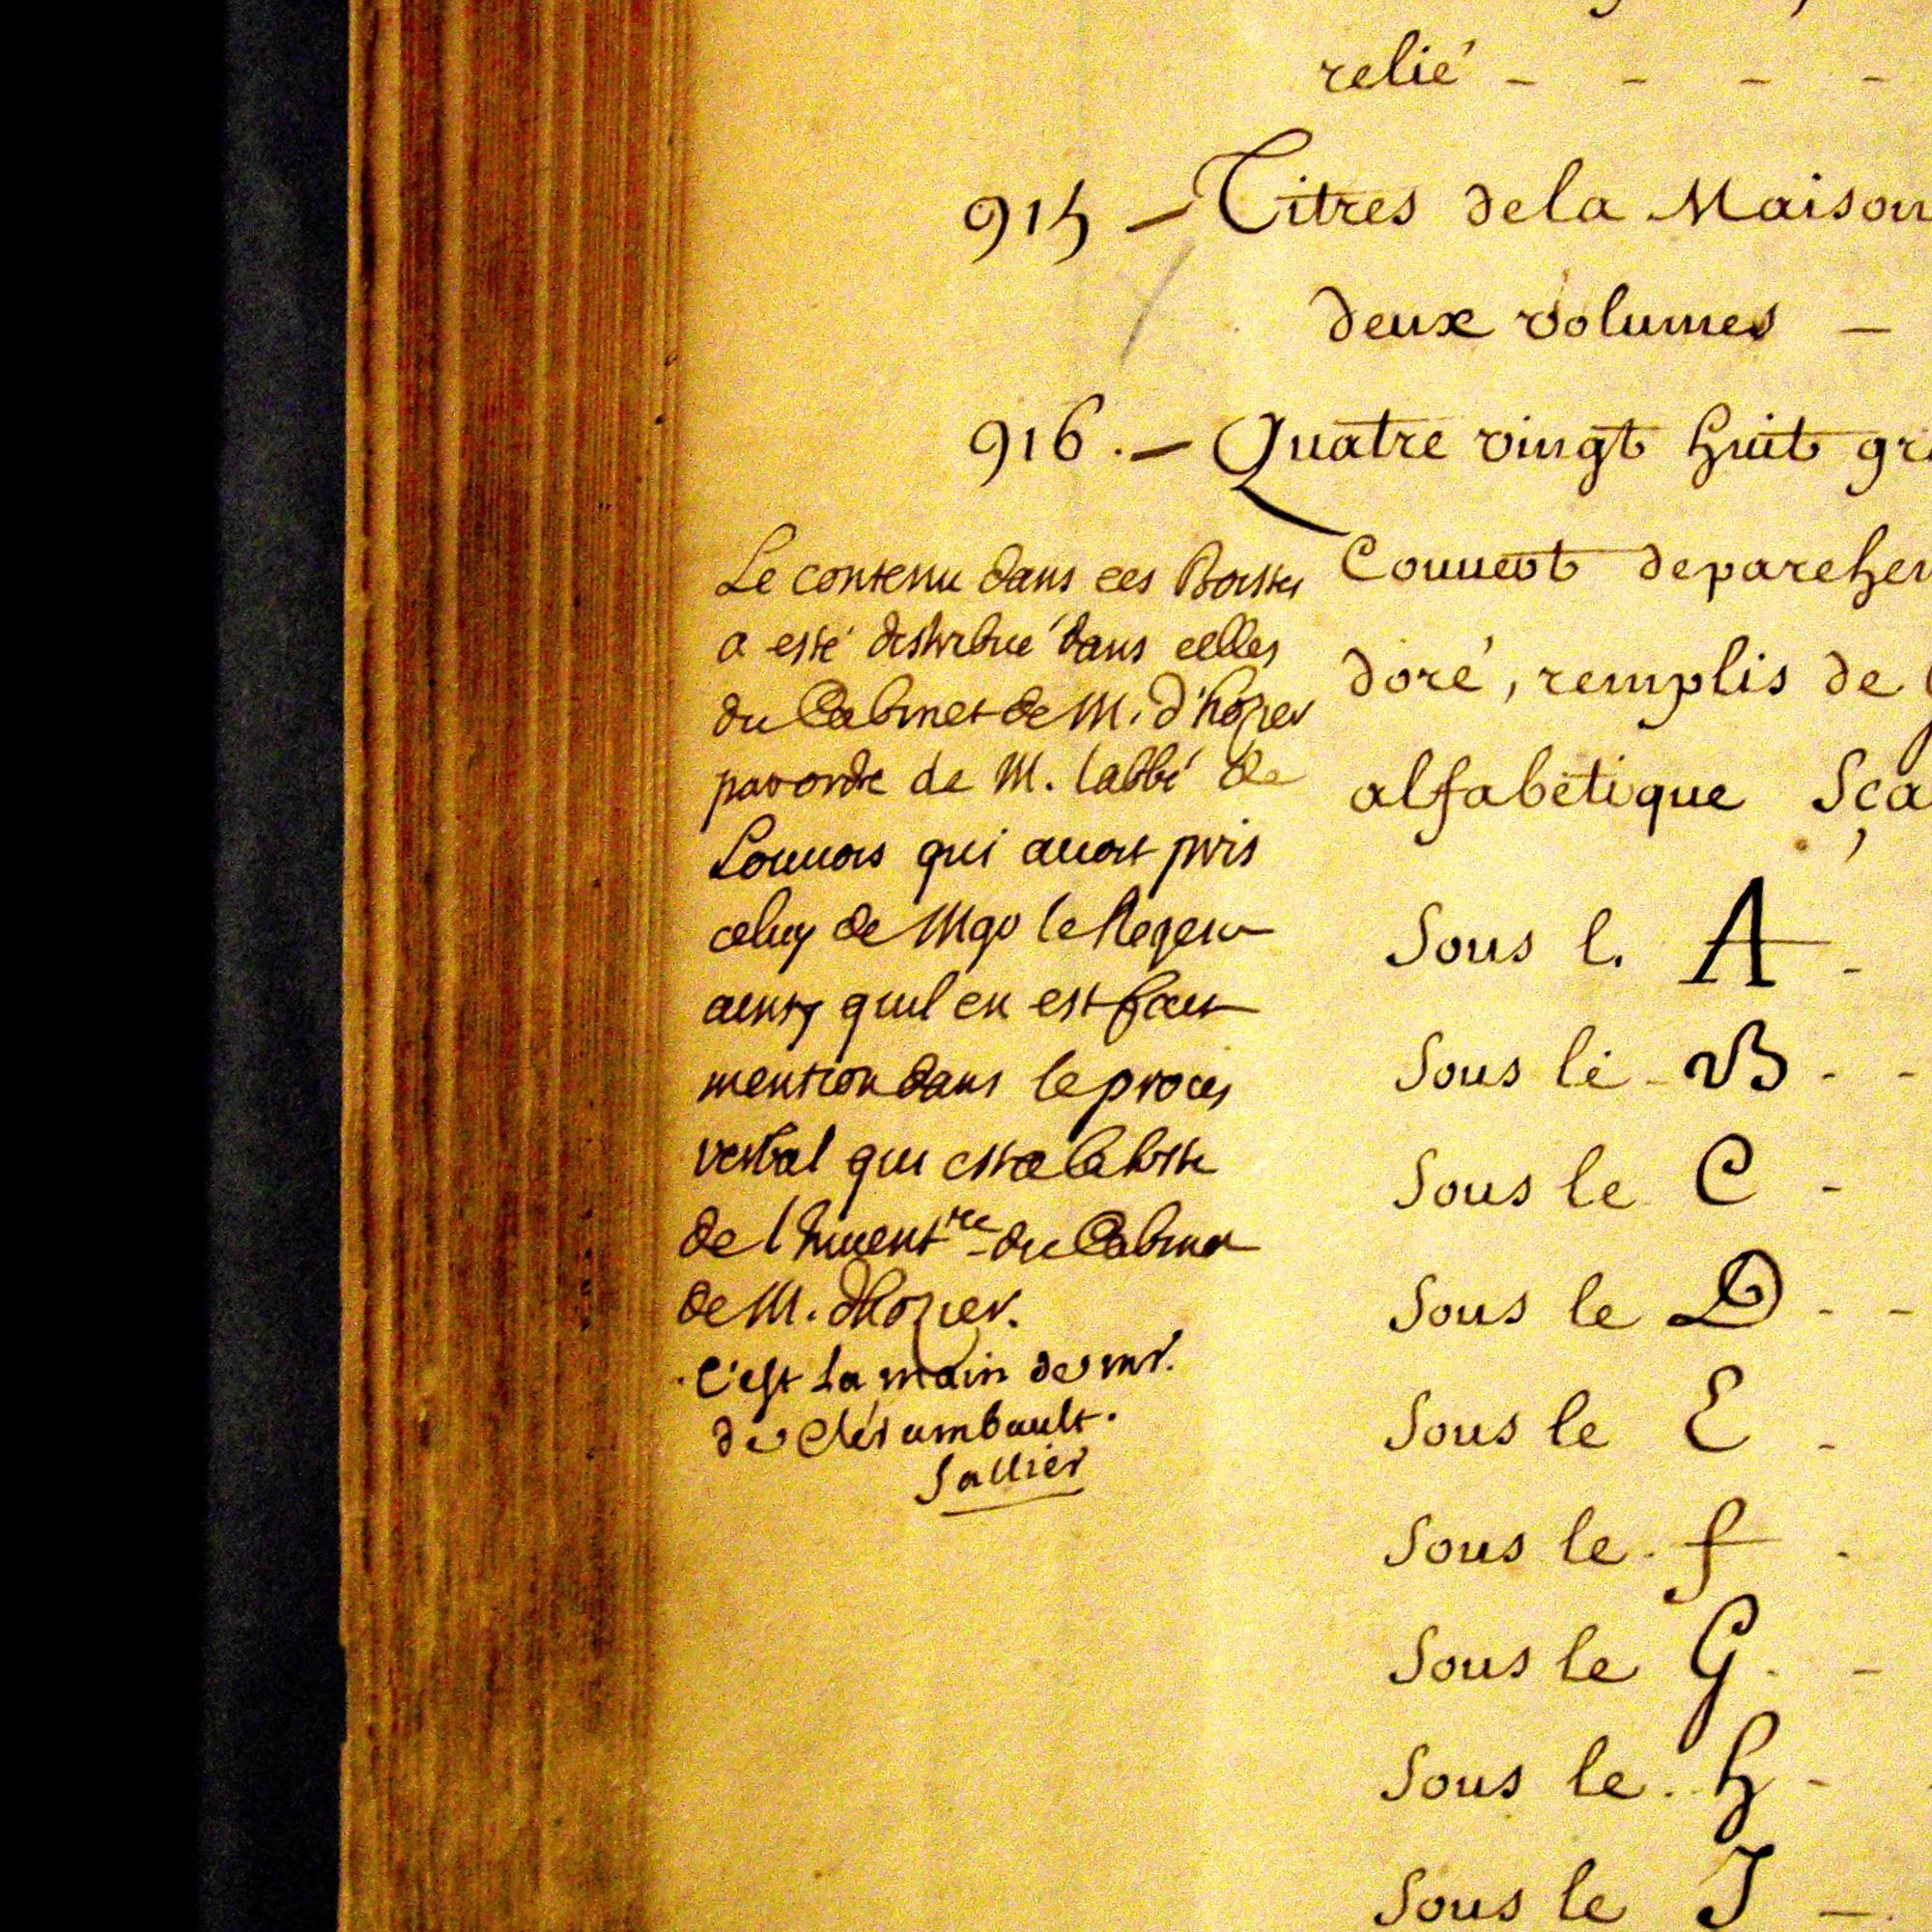 relié - - - -
915 - Titres dela Maison
deux volumes -
916. - Quatre vingt huit gr
Couvert deparchem
doré, remplis de
alfabétique Sça
Le contenu dans ces Boistes
a esté distribué dans celles
du Cabinet de M. d'hozier
par ordre de M. labbé de
Louuois qui auoit pris
celuy de Mgr le Regent
ainsy quil en est fait
mention dans le proces
verbal qui est a la liste
de l'Inuentre du Cabinet
de M. d'hozier.
C'est la main de mr.
de Clérambault.
Sallier
Sous l. A -
Sous le - B - -
Sous le C -
Sous le D - -
Sous le E -
Sous le. f -
Sous le G. -
Sous le. h -
Sous le J -